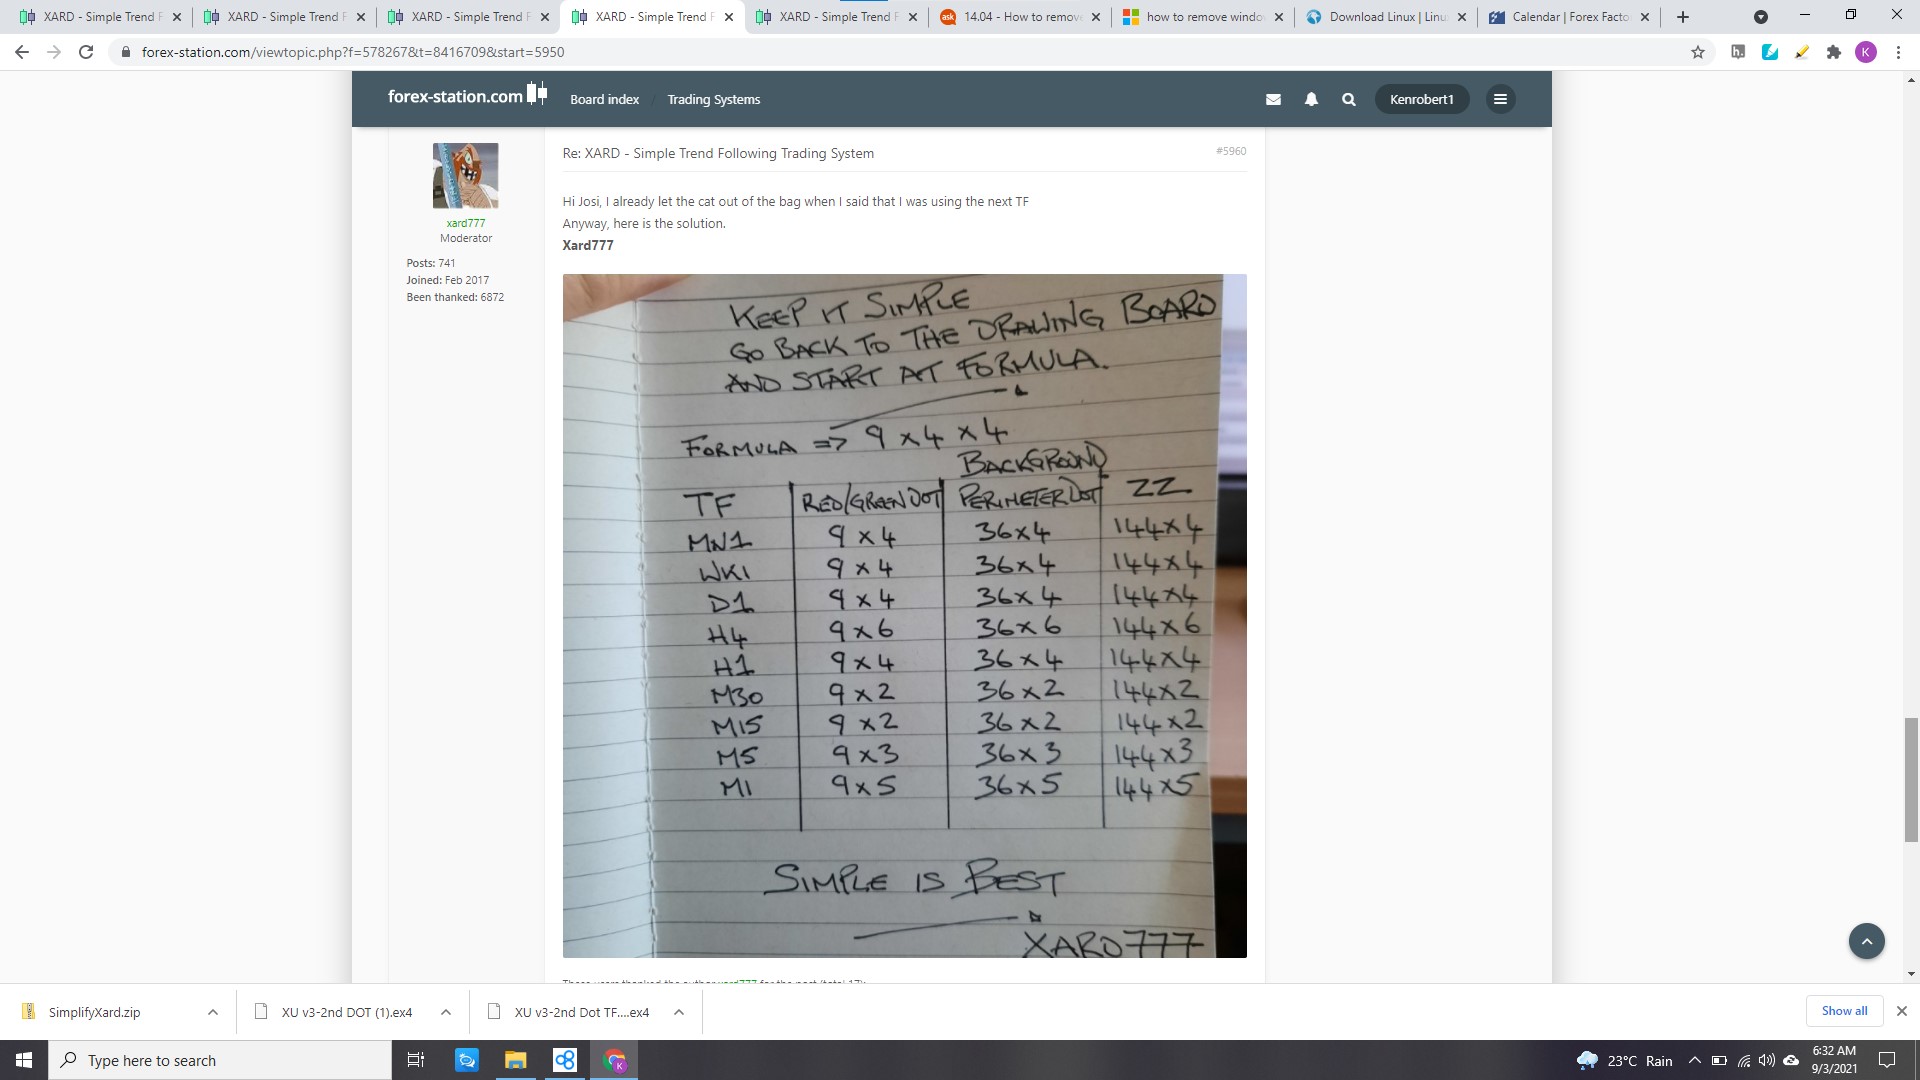 XARD - Simple Trend F
XARD - Simple Trend F
XARD - Simple Trend F
XARD - Simple Trend F
XARD - Simple Trend F
ask
14.04 - How to remove
how to remove windo
Download Linux | Linu
Calendar | Forex Facto
forex-station.com/viewtopic.php?f=578267&t=8416709&start=5950
K
forex-station.com
Board index / Trading Systems
Kenrobert1
xard777
Moderator
Posts: 741
Joined: Feb 2017
Been thanked: 6872
Re: XARD - Simple Trend Following Trading System
#5960
Hi Josi, I already let the cat out of the bag when I said that I was using the next TF
Anyway, here is the solution.
Xard777
KEEP IT SIMPLE
GO BACK TO THE DRAWING BOARD
AND START AT FORMULA.
FORMULA => 9 x 4 x 4
BACKGROUND
TF RED/GREEN DOT PERIMETER DOT ZZ
MN1 9 x 4 36x4 144x4
WK1 9 x 4 36x4 144x4
D1 9 x 4 36x4 144x4
H4 9 x 6 36x6 144x6
H1 9 x 4 36x4 144x4
M30 9 x 2 36x2 144x2
M15 9 x 2 36x2 144x2
M5 9 x 3 36x3 144x3
M1 9 x 5 36x5 144x5
SIMPLE IS BEST
XARD777
These users thanked the author xard777 for the post (total 17):
SimplifyXard.zip
XU v3-2nd DOT (1).ex4
XU v3-2nd Dot TF....ex4
Show all
Type here to search
K
23°C Rain
6:32 AM
9/3/2021